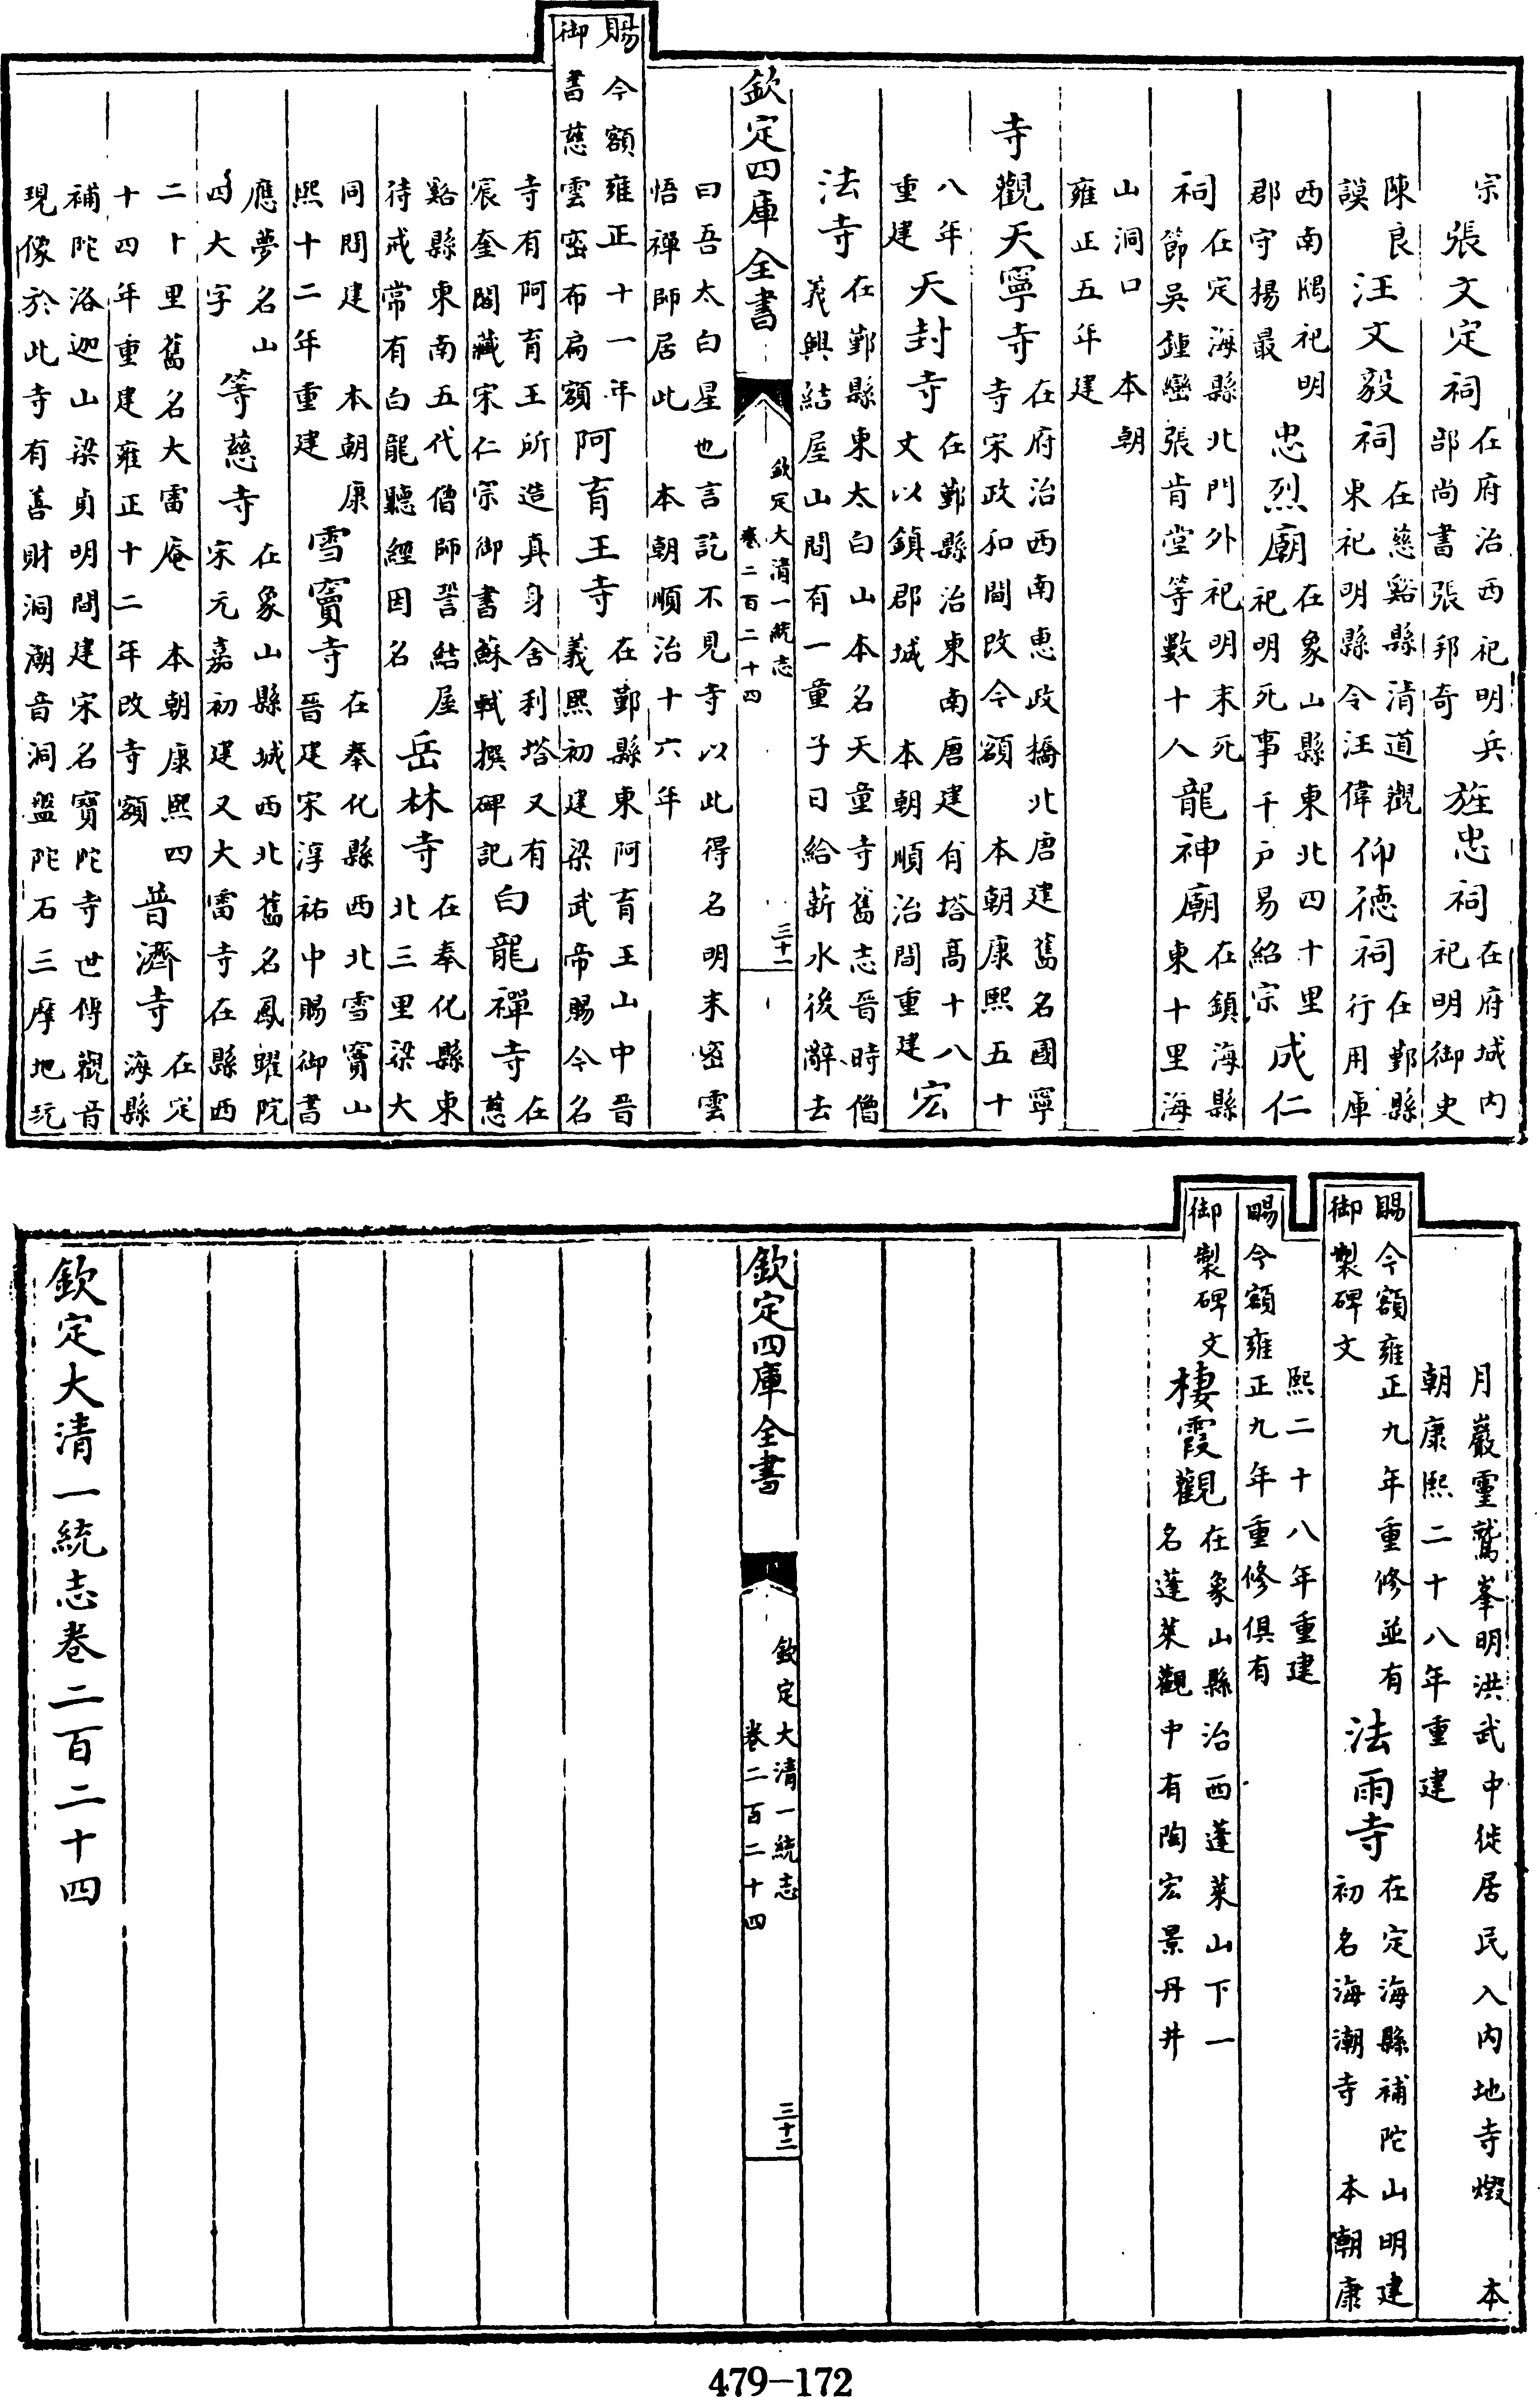 宗張文定祠在府治西祀明兵部尚書張邦奇旌忠祠在府城内祀明御史
陳良謨汪文毅祠在慈谿縣清道觀東祀明縣令汪偉仰德祠在鄞縣行用庫
西南隅祀明郡守揚最忠烈廟在象山縣東北四十里祀明死事千户易紹宗成仁
祠在定海縣北門外祀明末死節吳鍾巒張肯堂等數十人龍神廟在鎮海縣東十里海
山洞口 本朝雍正五年建
寺觀天寧寺在府治西南惠政橋北唐建舊名國寧寺宋政和間改今額 本朝康熙五十
八年重建天封寺在鄞縣治東南唐建有塔高十八丈以鎮郡城 本朝順治間重建宏
法寺在鄞縣東太白山本名天童寺舊志晉時僧義興結屋山間有一童子日給薪水後辭去
欽定四庫全書 欽定大清一統志 卷二百二十四 三十一
曰吾太白星也言訖不見寺以此得名明末密雲悟禪師居此 本朝順治十六年
賜今額雍正十一年御書慈雲密布扁額阿育王寺在鄞縣東阿育王山中晉義熙初建梁武帝賜今名
寺有阿育王所造真身舍利塔又有宸奎閣藏宋仁宗御書蘇軾撰碑記白龍禪寺在慈
谿縣東南五代僧師詧結屋待戒常有白龍聽經因名岳林寺在奉化縣東北三里梁大
同間建 本朝康熙十二年重建雪竇寺在奉化縣西北雪竇山晉建宋淳祐中賜御書
應夢名山四大字等慈寺在象山縣城西北舊名鳳躍院宋元嘉初建又大雷寺在縣西
二十里舊名大雷庵 本朝康熙四十四年重建雍正十二年改寺額普濟寺在定海縣
補陀洛迦山梁貞明間建宋名寶陀寺世傳觀音現像於此寺有善財洞潮音洞盤陀石三摩地玩
月巖靈鷲峯明洪武中徙居民入内地寺燬 本朝康熙二十八年重建
賜今額雍正九年重修並有御製碑文法雨寺在定海縣補陀山明建初名海潮寺 本朝康
熙二十八年重建
賜今額雍正九年重修俱有
御製碑文棲霞觀在象山縣治西蓬萊山下一名蓬萊觀中有陶宏景丹井
欽定四庫全書 欽定大清一統志 卷二百二十四 三十二
欽定大清一統志卷二百二十四
479-172